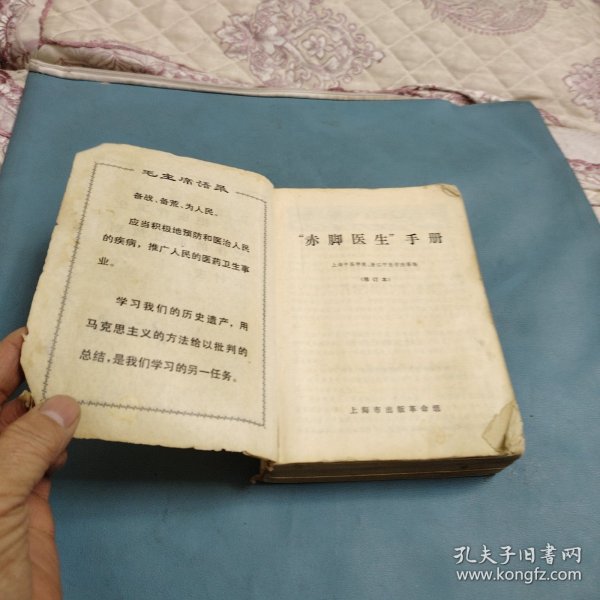 毛主席语录
备战、备荒、为人民。
应当积极地预防和医治人民
的疾病，推广人民的医药卫生事
业。
学习我们的历史遗产，用
马克思主义的方法给以批判的
总结，是我们学习的另一任务。
“赤脚医生”手册
(修订本)
上海市出版革命组
孔夫子旧书网
www.kongfz.com